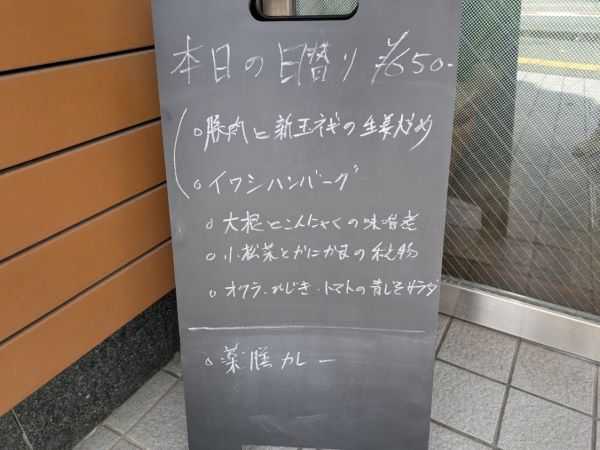 本日の日替り ¥650-
○豚肉と新玉ネギの生姜炒め
○イワシハンバーグ
○大根とこんにゃくの味噌煮
○小松菜とかにかまの和え物
○オクラ・ひじき・トマトの青しそサラダ
○薬膳カレー